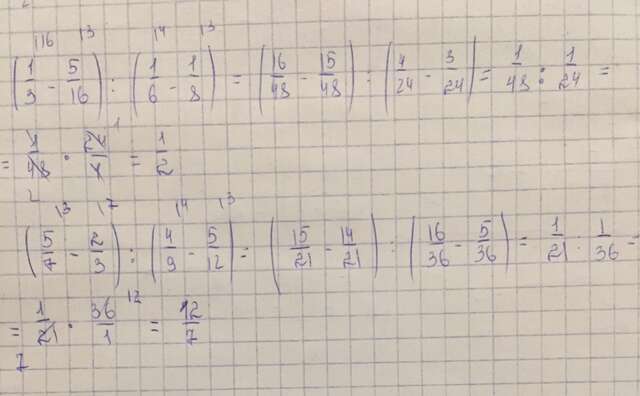 (1/3 |16 - 5/16 |3) : (1/6 |4 - 1/8 |3) = (16/48 - 15/48) : (4/24 - 3/24) = 1/48 : 1/24 =
= 1/48 2 · 24/1 1 = 1/2
(5/7 |3 - 2/3 |7) : (4/9 |4 - 5/12 |3) = (15/21 - 14/21) : (16/36 - 5/36) = 1/21 : 1/36 =
= 1/21 7 · 36/1 |12 = 12/7